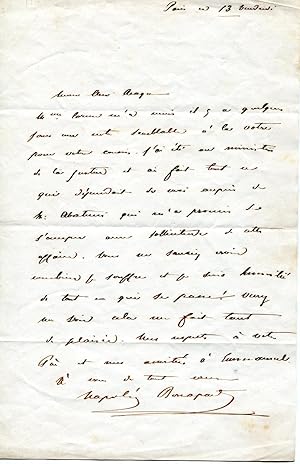 Paris ce 13 vendredi
Mon cher Arago
m'a remis il y a quelques
jours une note semblable à la votre
pour votre cousin. J'ai été au ministère
de la justice et ai fait tout ce
qui dépendait de moi auprès de
Mr Abatucci qui m'a promis de
s'occuper avec sollicitude de cette
affaire. Vous ne sauriez croire
combien je souffre et je suis humilié
de tout ce qui se passe! Venez
un soir cela me fait tant
de plaisir. Mes respects à votre
Père et mes amitiés à Emmanuel
A vous de tout cœur
Napoléon Bonaparte